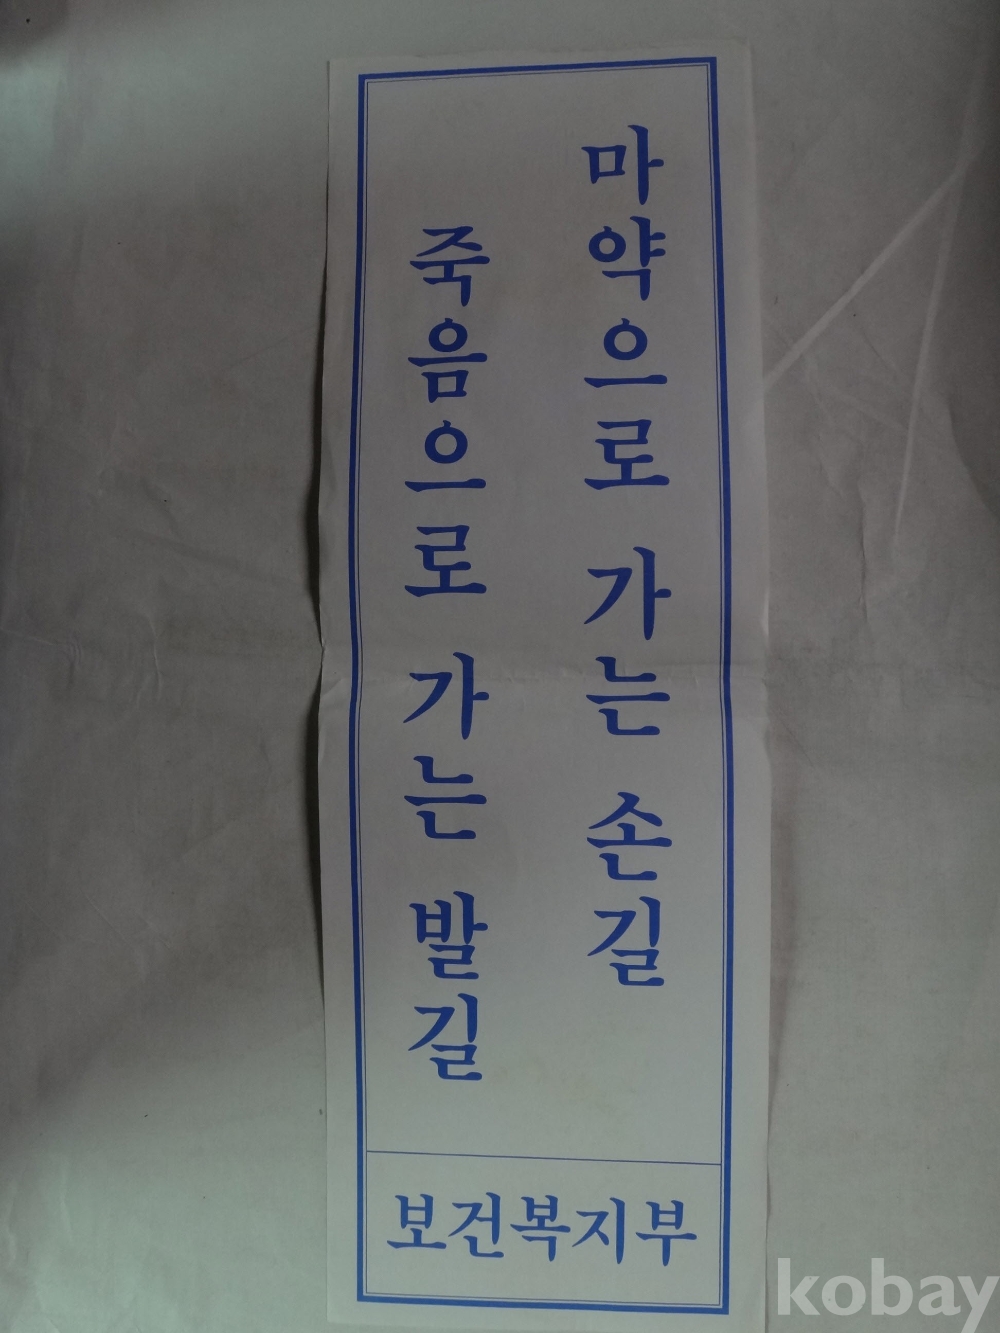 마약으로 가는 손길
죽음으로 가는 발길
보건복지부
kobay